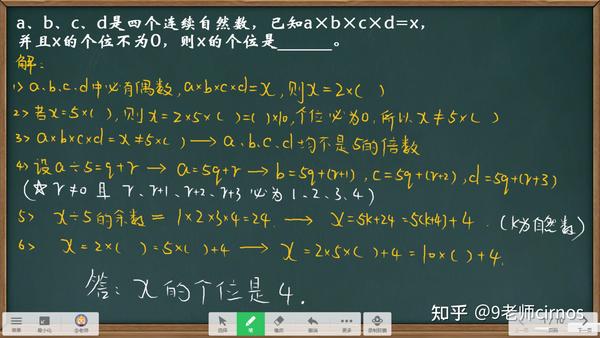 a、b、c、d是四个连续自然数，已知a×b×c×d=x，
并且x的个位不为0，则x的个位是______。
解：
1> a.b.c.d中必有偶数，a×b×c×d=x，则x=2×( )
2> 若x=5×( )，则x=2×5×( )=( )×10，个位必为0，所以x≠5×( )
3> a×b×c×d=x≠5×( ) → a.b.c.d均不是5的倍数
4> 设a÷5=q+r → a=5q+r → b=5q+(r+1)，c=5q+(r+2)，d=5q+(r+3)
(☆ r≠0 且 r、r+1、r+2、r+3 必为 1、2、3、4)
5> x÷5的余数=1×2×3×4=24 → x=5k+24=5(k+4)+4．(k为自然数)
6> x=2×( )=5×( )+4 → x=2×5×( )+4=10×( )+4.
答：x的个位是4.
知乎 @9老师cirnos
菜单 最小化 选择 笔 橡皮 撤销 更多 上一页 下一页